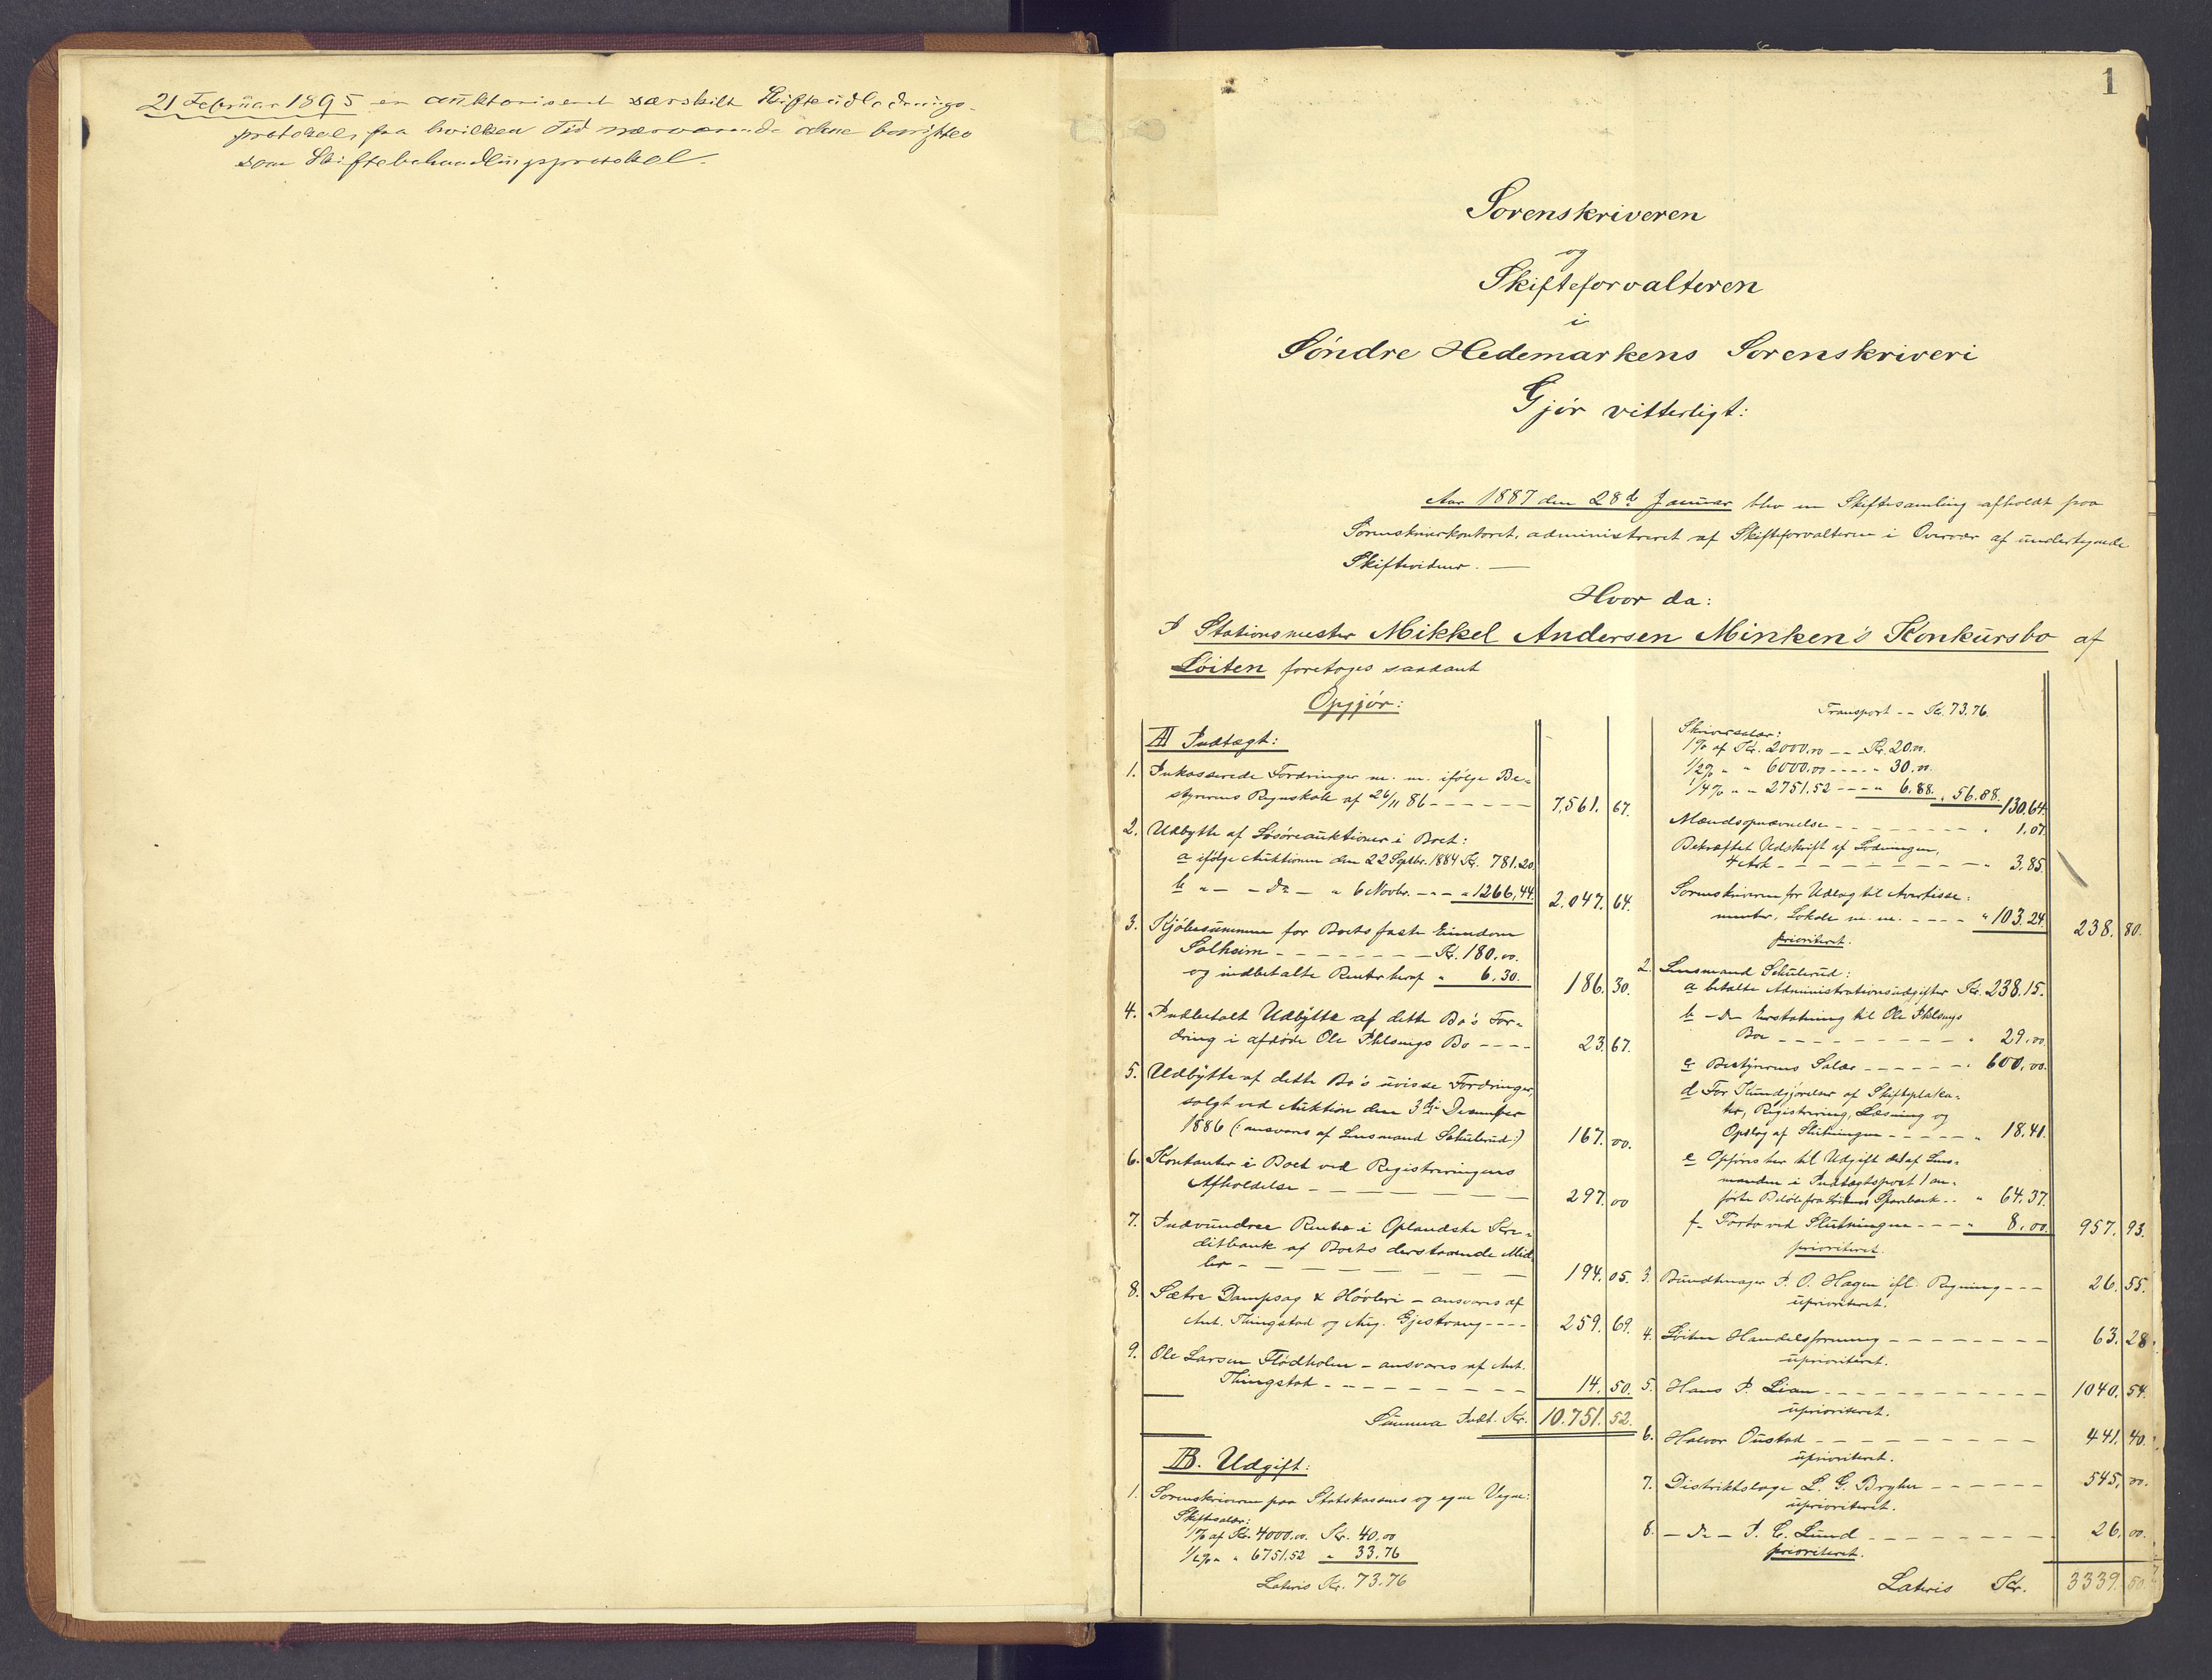 21 Februar 1895 er auktoriseret særskilt Skifteudlodnings-
protokol, fra hvilken Tid nærværende alene benyttes
som Skiftebehandlingsprotokol.
1
Sorenskriveren
og
Skifteforvalteren
i
Söndre Hedemarkens Sorenskriveri
Gjör vitterligt:
Aar 1887 den 28de Januar blev en Skiftesamling afholdt paa
Sorenskriverkontoret, administreret af Skifteforvalteren i Overvær af undertegnede
Skiftevidner. —
Hvor da:
I Stationsmester Mikkel Andersen Minken's Konkursbo af
Löiten foretoges saadant
Opgjör:
A Indtægt:
1. Inkasserede Fordringer m. m. ifölge Be-
styrerens Regnskab af 26/11 86 - - - - - - 7,561. 67.
2. Udbytte af Lösöreauktioner i Boet:
a ifölge Auktionen den 22 Septbr. 1884 Kr. 781.20
b " - - Do - " 6 Novbr. - - - " 1266,44. 2.047. 64.
3. Kjöbesummen for Boets faste Eiendom
Solheim - - - - - - - - Kr. 180.00.
og indbetalte Renter heraf " 6.30. 186. 30.
4. Indbetalt Udbytte af dette Bo's For-
dring i afdöde Ole Ihlsengs Bo - - - - 23. 67.
5. Udbytte af dette Bo's uvisse Fordringer,
solgt ved Auktion den 3die Desember
1886 (: ansvares af Lensmand Schulerud :) 167. 00.
6. Kontanter i Boet ved Registreringens
Afholdelse - - - - - - - - 297. 00
7. Indvundne Renter i Oplandske Kre-
ditbank af Boets derstaaende Mid-
ler - - - - - - - - 194. 05.
8. Sætre Dampsag & Hövleri - ansvares af
Ant. Thingstad og Aug. Gjestvang - - - - 259. 69.
9. Ole Larsen Flödholm - ansvares af Ant.
Thingstad - - - - - - - - 14. 50.
Summa Indt. Kr. 10.751. 52.
B. Udgift:
1. Sorenskriveren paa Statskassens og egne Vegne:
Skiftesalær:
1% af Kr. 4000.00. Kr. 40.00
1/2% " " 6751.52 " 33.76
Lateris Kr. 73.76
Transport - - Kr. 73.76.
Skriversalær:
1% af Kr. 2000.00 - - Kr. 20.00.
1/2% " " 6000.00 - - - - " 30.00.
1/4% " " 2751.52 - - - " 6.88. " 56.88. 130.64.
Mændsopnævnelse - - - - - - - - " 1.07.
Bekræftet Udskrift af Lodningen,
4 Ark - - - - - - - - " 3.85.
Sorenskriveren for Udlæg til Avertisse-
menter, Lokale m. m. - - - - " 103.24. 238. 80.
prioriteret.
2. Lensmand Schulerud:
a betalte Administrationsudgifter Kr. 238.15.
b - Do Erstatning til Ole Ihlsengs
Bo - - - - - - - - " 29.00.
c Bestyrerens Salær - - - - - - " 600.00.
d For Kundgjörelser af Skifteplaka-
ter, Registrering, Læsning og
Opslag af Slutningen - - - - - " 18.41.
e Opföres her til Udgift det af Lens-
manden i Indtægtspost 1 an-
förte Belöb fra Löitens Sparebank - - " 64.37.
f. Porto ved Slutningen - - - - " 8.00. 957. 93.
prioriteret.
3. Bundtmager P. O. Hagen ifl. Regning - - - 26. 55.
uprioriteret.
4. Löiten Handelsforening - - - - - - - - 63. 28.
uprioriteret.
5. Hans P. Lian - - - - - - - - - - - 1040. 54.
uprioriteret.
6. Halvor Oustad - - - - - - - - - - 441. 40.
uprioriteret.
7. Distriktslæge L. G. Bryhn - - - - - - 545. 00.
uprioriteret.
8. - Do - P. C. Lund - - - - - - - - - 26. 00.
prioriteret.
Lateris Kr. 3339. 50.